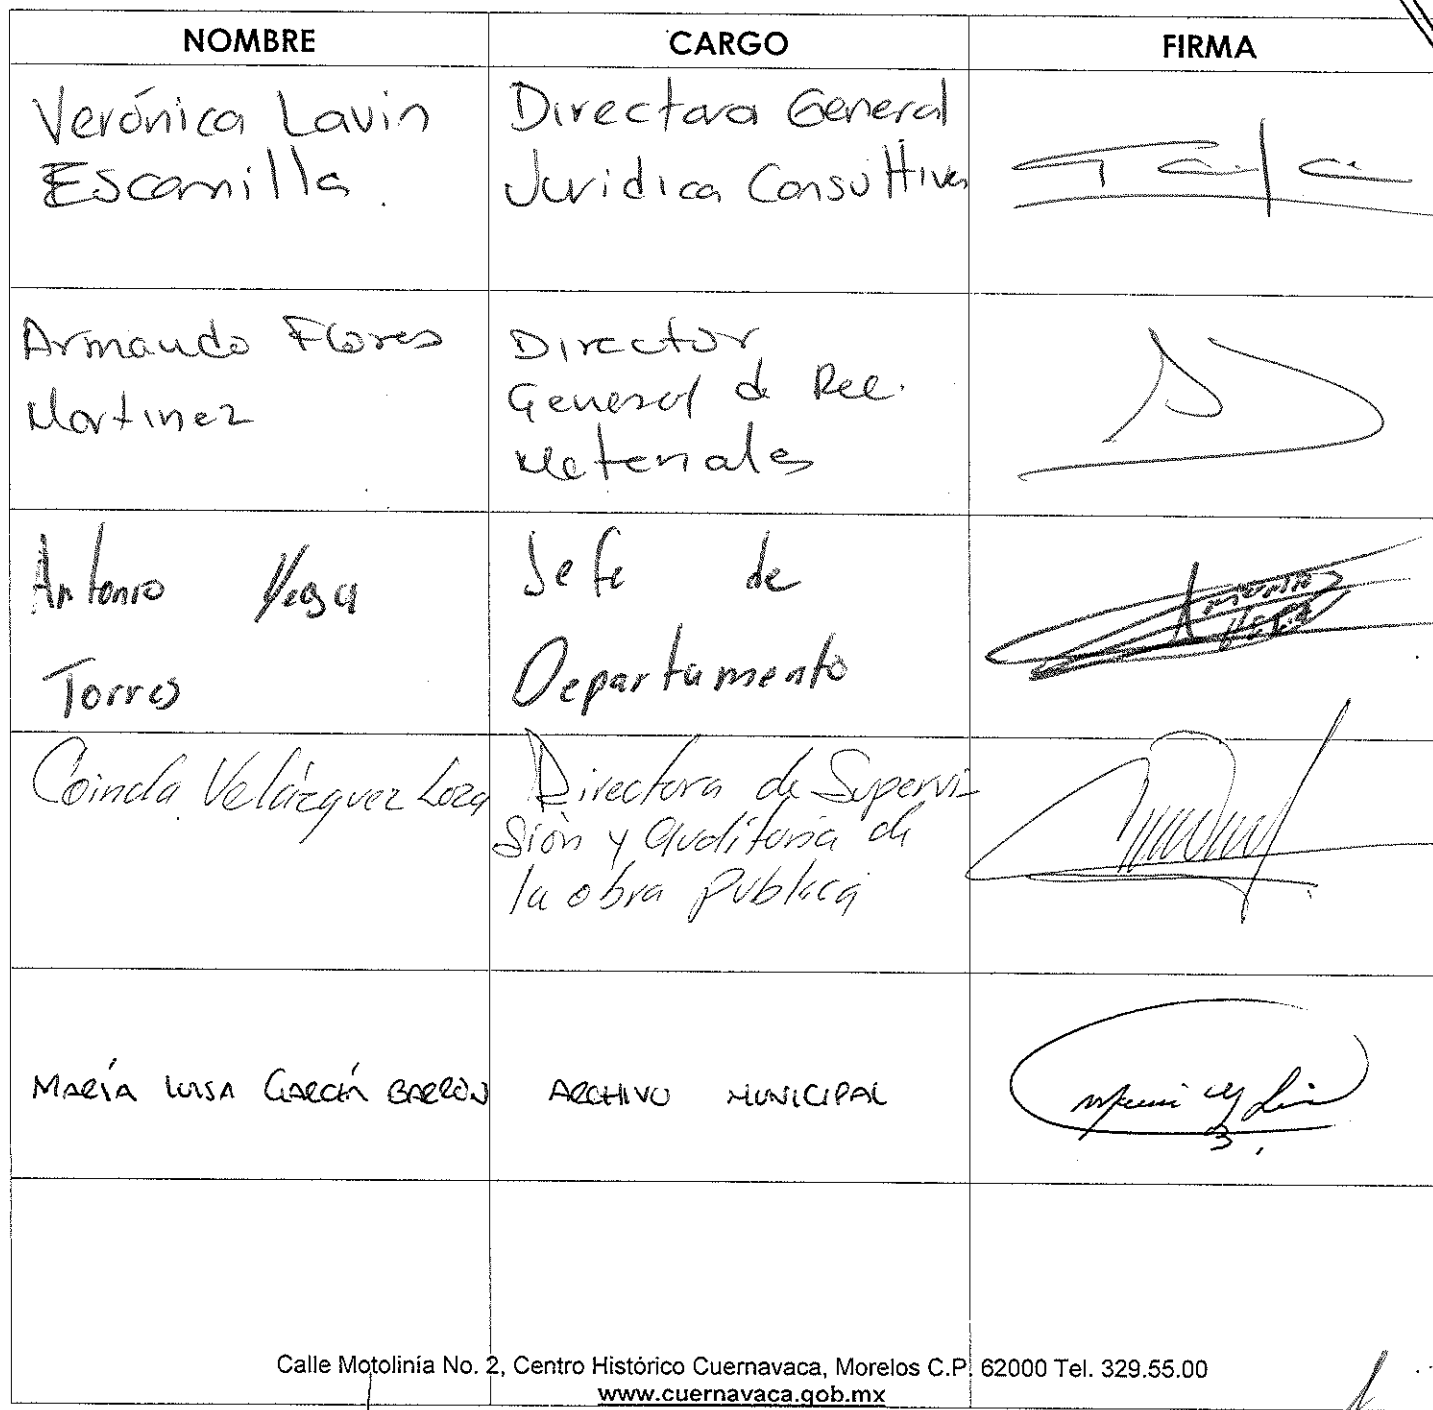 NOMBRE CARGO FIRMA
Verónica Lavin Directora General
Escamilla. Jurídica Consultiva
Armando Flores Director
Martinez General de Rec.
Materiales
Antonio Vega Jefe de
Torres Departamento
Antonio
Vega
Velázquez Loza Directora de Supervi-
sión y auditoria de
la obra publica
MARÍA LUISA GARCÍA BARRÓN ARCHIVO MUNICIPAL
Calle Motolinía No. 2, Centro Histórico Cuernavaca, Morelos C.P. 62000 Tel. 329.55.00
www.cuernavaca.gob.mx